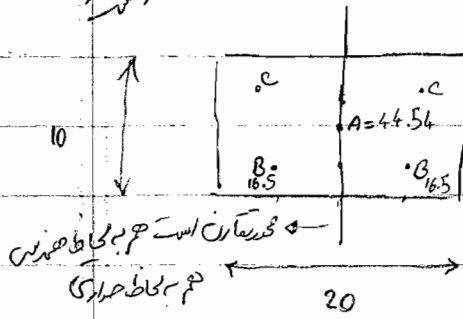 .C
.C
A=44.54
10
B.
16.5
.B
16.5
محور تقارن است هم به لحاظ هندسی
هم به لحاظ حرارتی
20